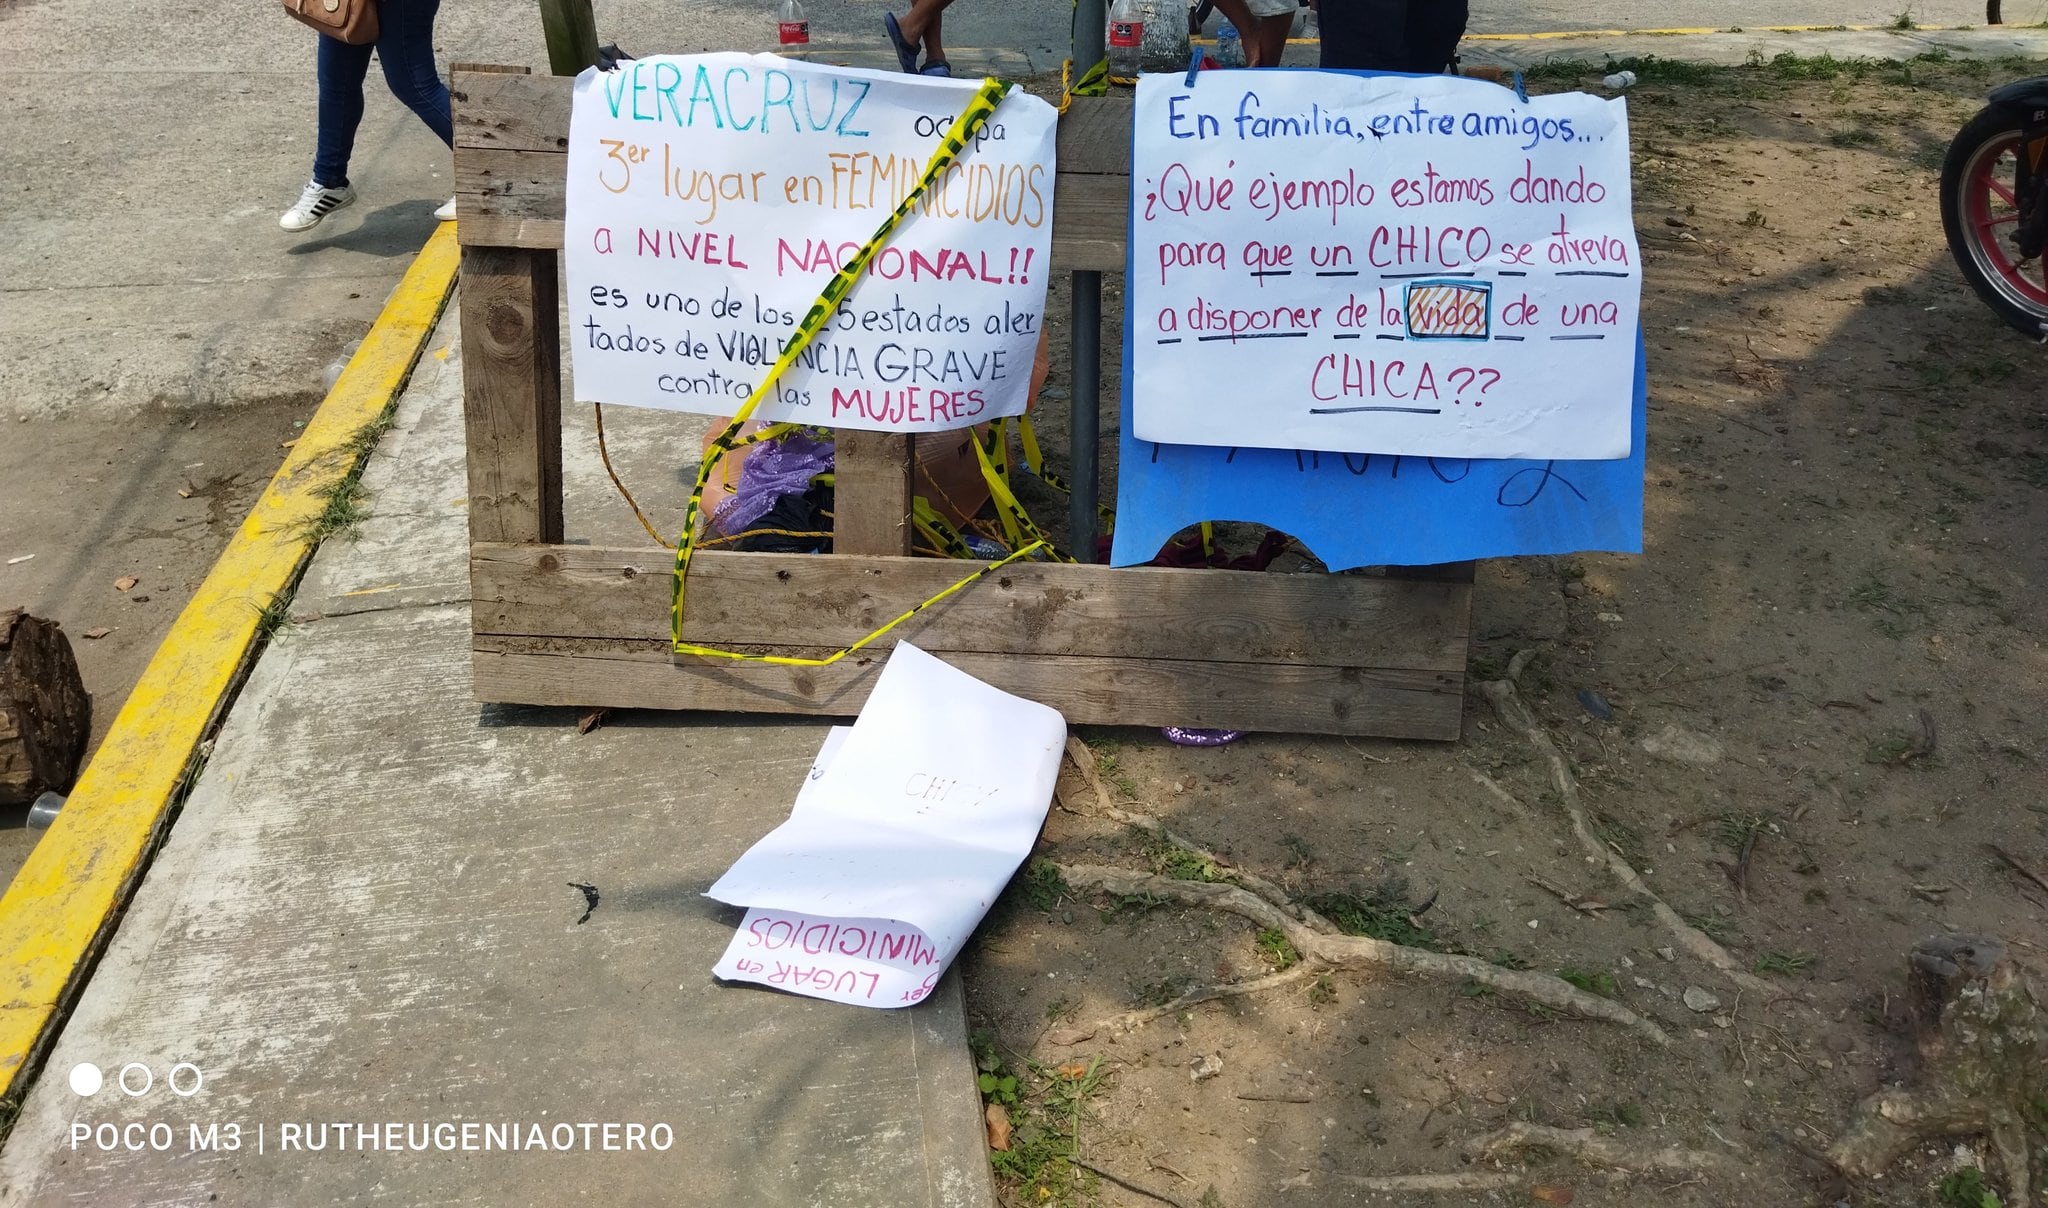 VERACRUZ ocupa
3er lugar en FEMINICIDIOS
a NIVEL NACIONAL!!
es uno de los 25 estados aler
tados de VIOLENCIA GRAVE
contra las MUJERES
En familia, entre amigos...
¿Qué ejemplo estamos dando
para que un CHICO se atreva
a disponer de la vida de una
CHICA??
LUGAR en
MINICIDIOS
POCO M3 | RUTHEUGENIAOTERO